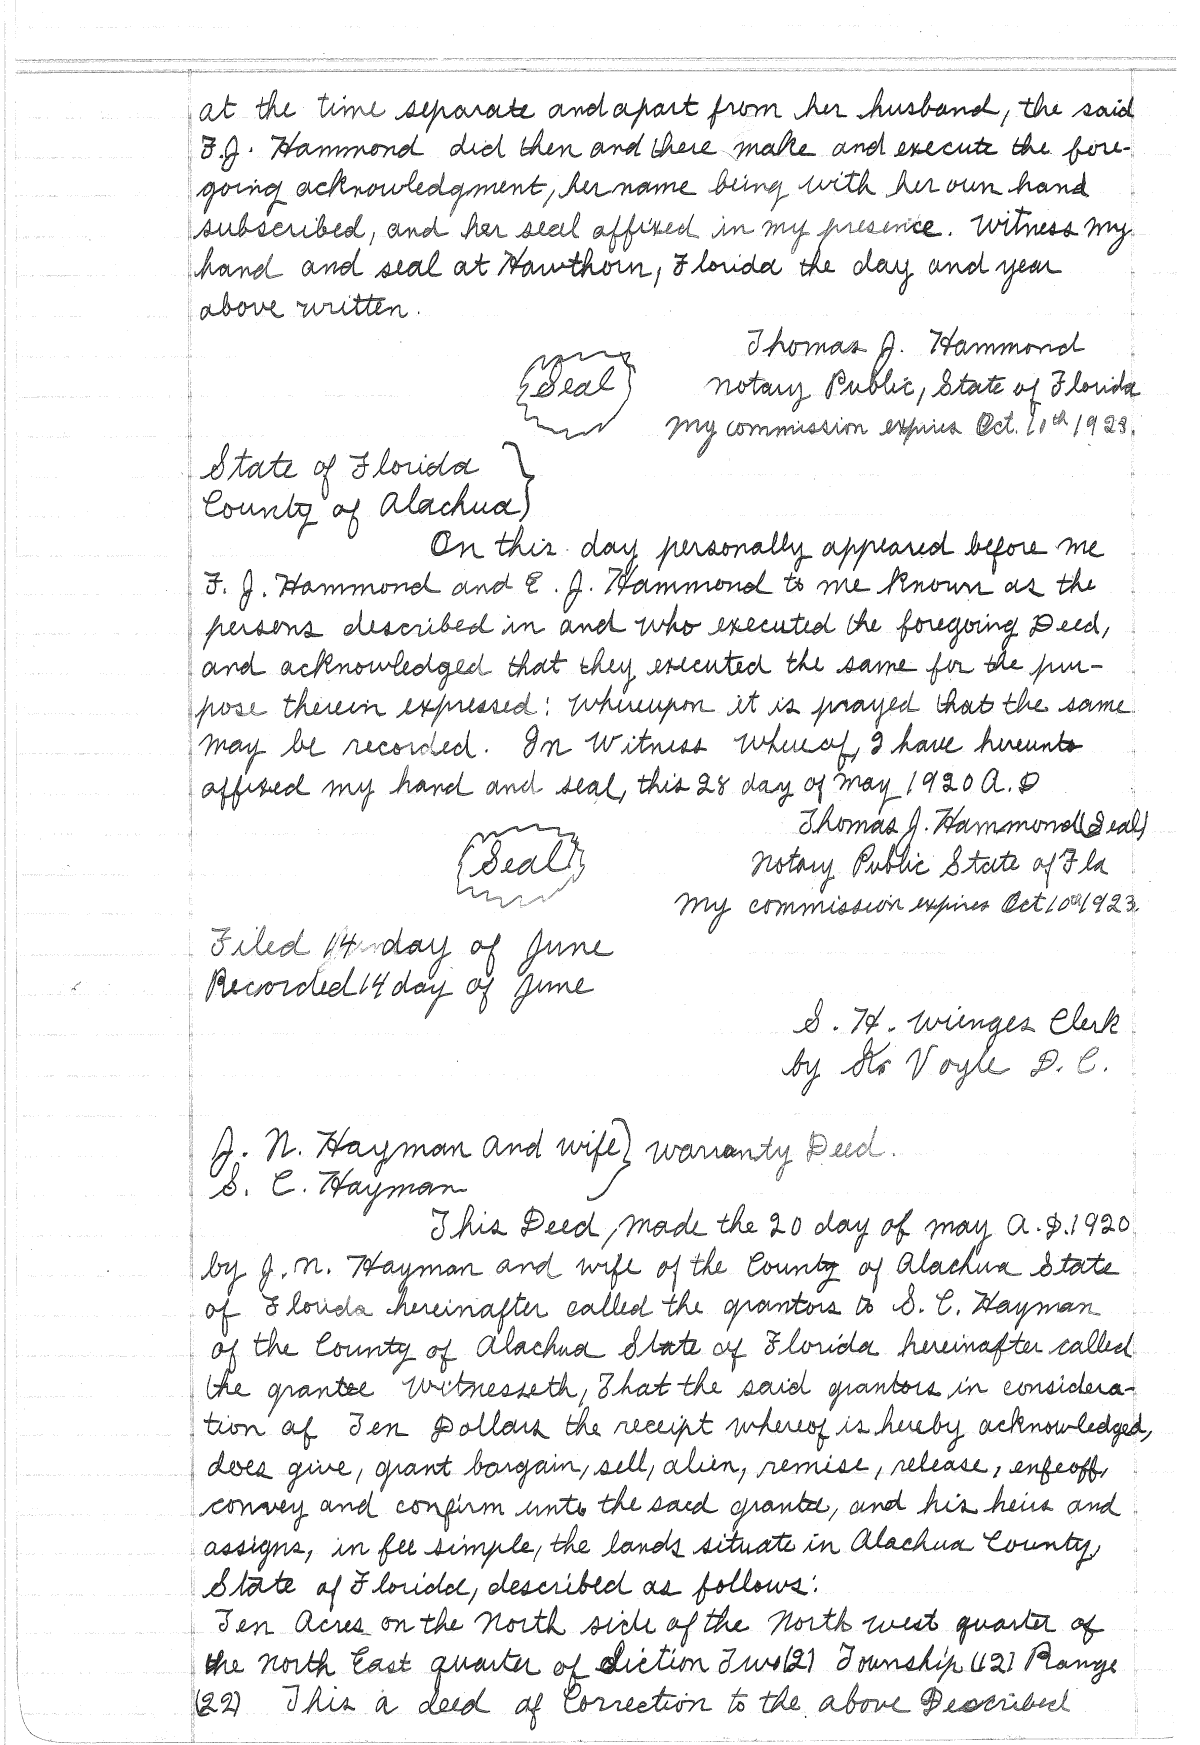 at the time separate and apart from her husband, the said
F.J. Hammond did then and there make and execute the fore-
going acknowledgment, her name being with her own hand
subscribed, and her seal affixed in my presence. Witness my
hand and seal at Hawthorn, Florida the day and year
above written.
Thomas J. Hammond
Seal
Notary Public, State of Florida
My commission expires Oct. 10th 1923.
State of Florida
County of Alachua
On this day personally appeared before me
F. J. Hammond and E. J. Hammond to me known as the
persons described in and who executed the foregoing Deed,
and acknowledged that they executed the same for the pur-
pose therein expressed: Whereupon it is prayed that the same
may be recorded. In Witness Whereof, I have hereunto
affixed my hand and seal, this 28 day of May 1920 A.D
Thomas J. Hammond (Seal)
Seal
Notary Public State of Fla
My commission expires Oct 10th 1923.
Filed 14 day of June
Recorded 14 day of June
S. H. Wienges Clerk
by Voyle D.C.
J. N. Hayman and wife } Warranty Deed.
S. C. Hayman
This Deed, made the 20 day of May A.D. 1920
by J. N. Hayman and wife of the County of Alachua State
of Florida hereinafter called the grantors to S. C. Hayman
of the County of Alachua State of Florida hereinafter called
the grantee Witnesseth, That the said grantors in considera-
tion of Ten Dollars the receipt whereof is hereby acknowledged,
does give, grant bargain, sell, alien, remise, release, enfeoff,
convey and confirm unto the said grantee, and his heirs and
assigns, in fee simple, the lands situate in Alachua County,
State of Florida, described as follows:
Ten Acres on the North side of the North west quarter of
the North East quarter of Section Two (2) Township (12) Range
(22) This a deed of Correction to the above Described